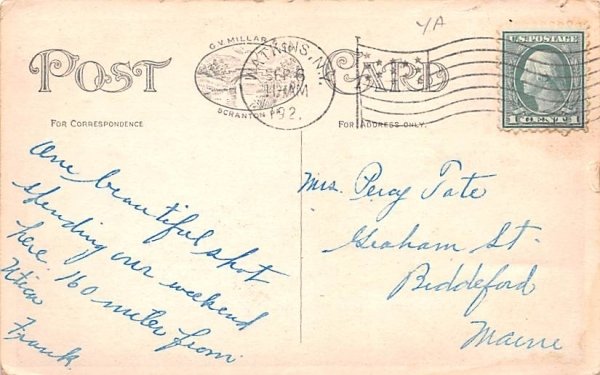 YA
POST CARD
G.V. MILLAR
SCRANTON PA.
WATKINS N.Y.
SEP 6
11 AM
192
U.S. POSTAGE
1 CENT 1
FOR CORRESPONDENCE
FOR ADDRESS ONLY.
One beautiful spot
spending our weekend
here 160 miles from
Utica
Frank.
Mrs. Percy Tate
Graham St.
Biddeford
Maine